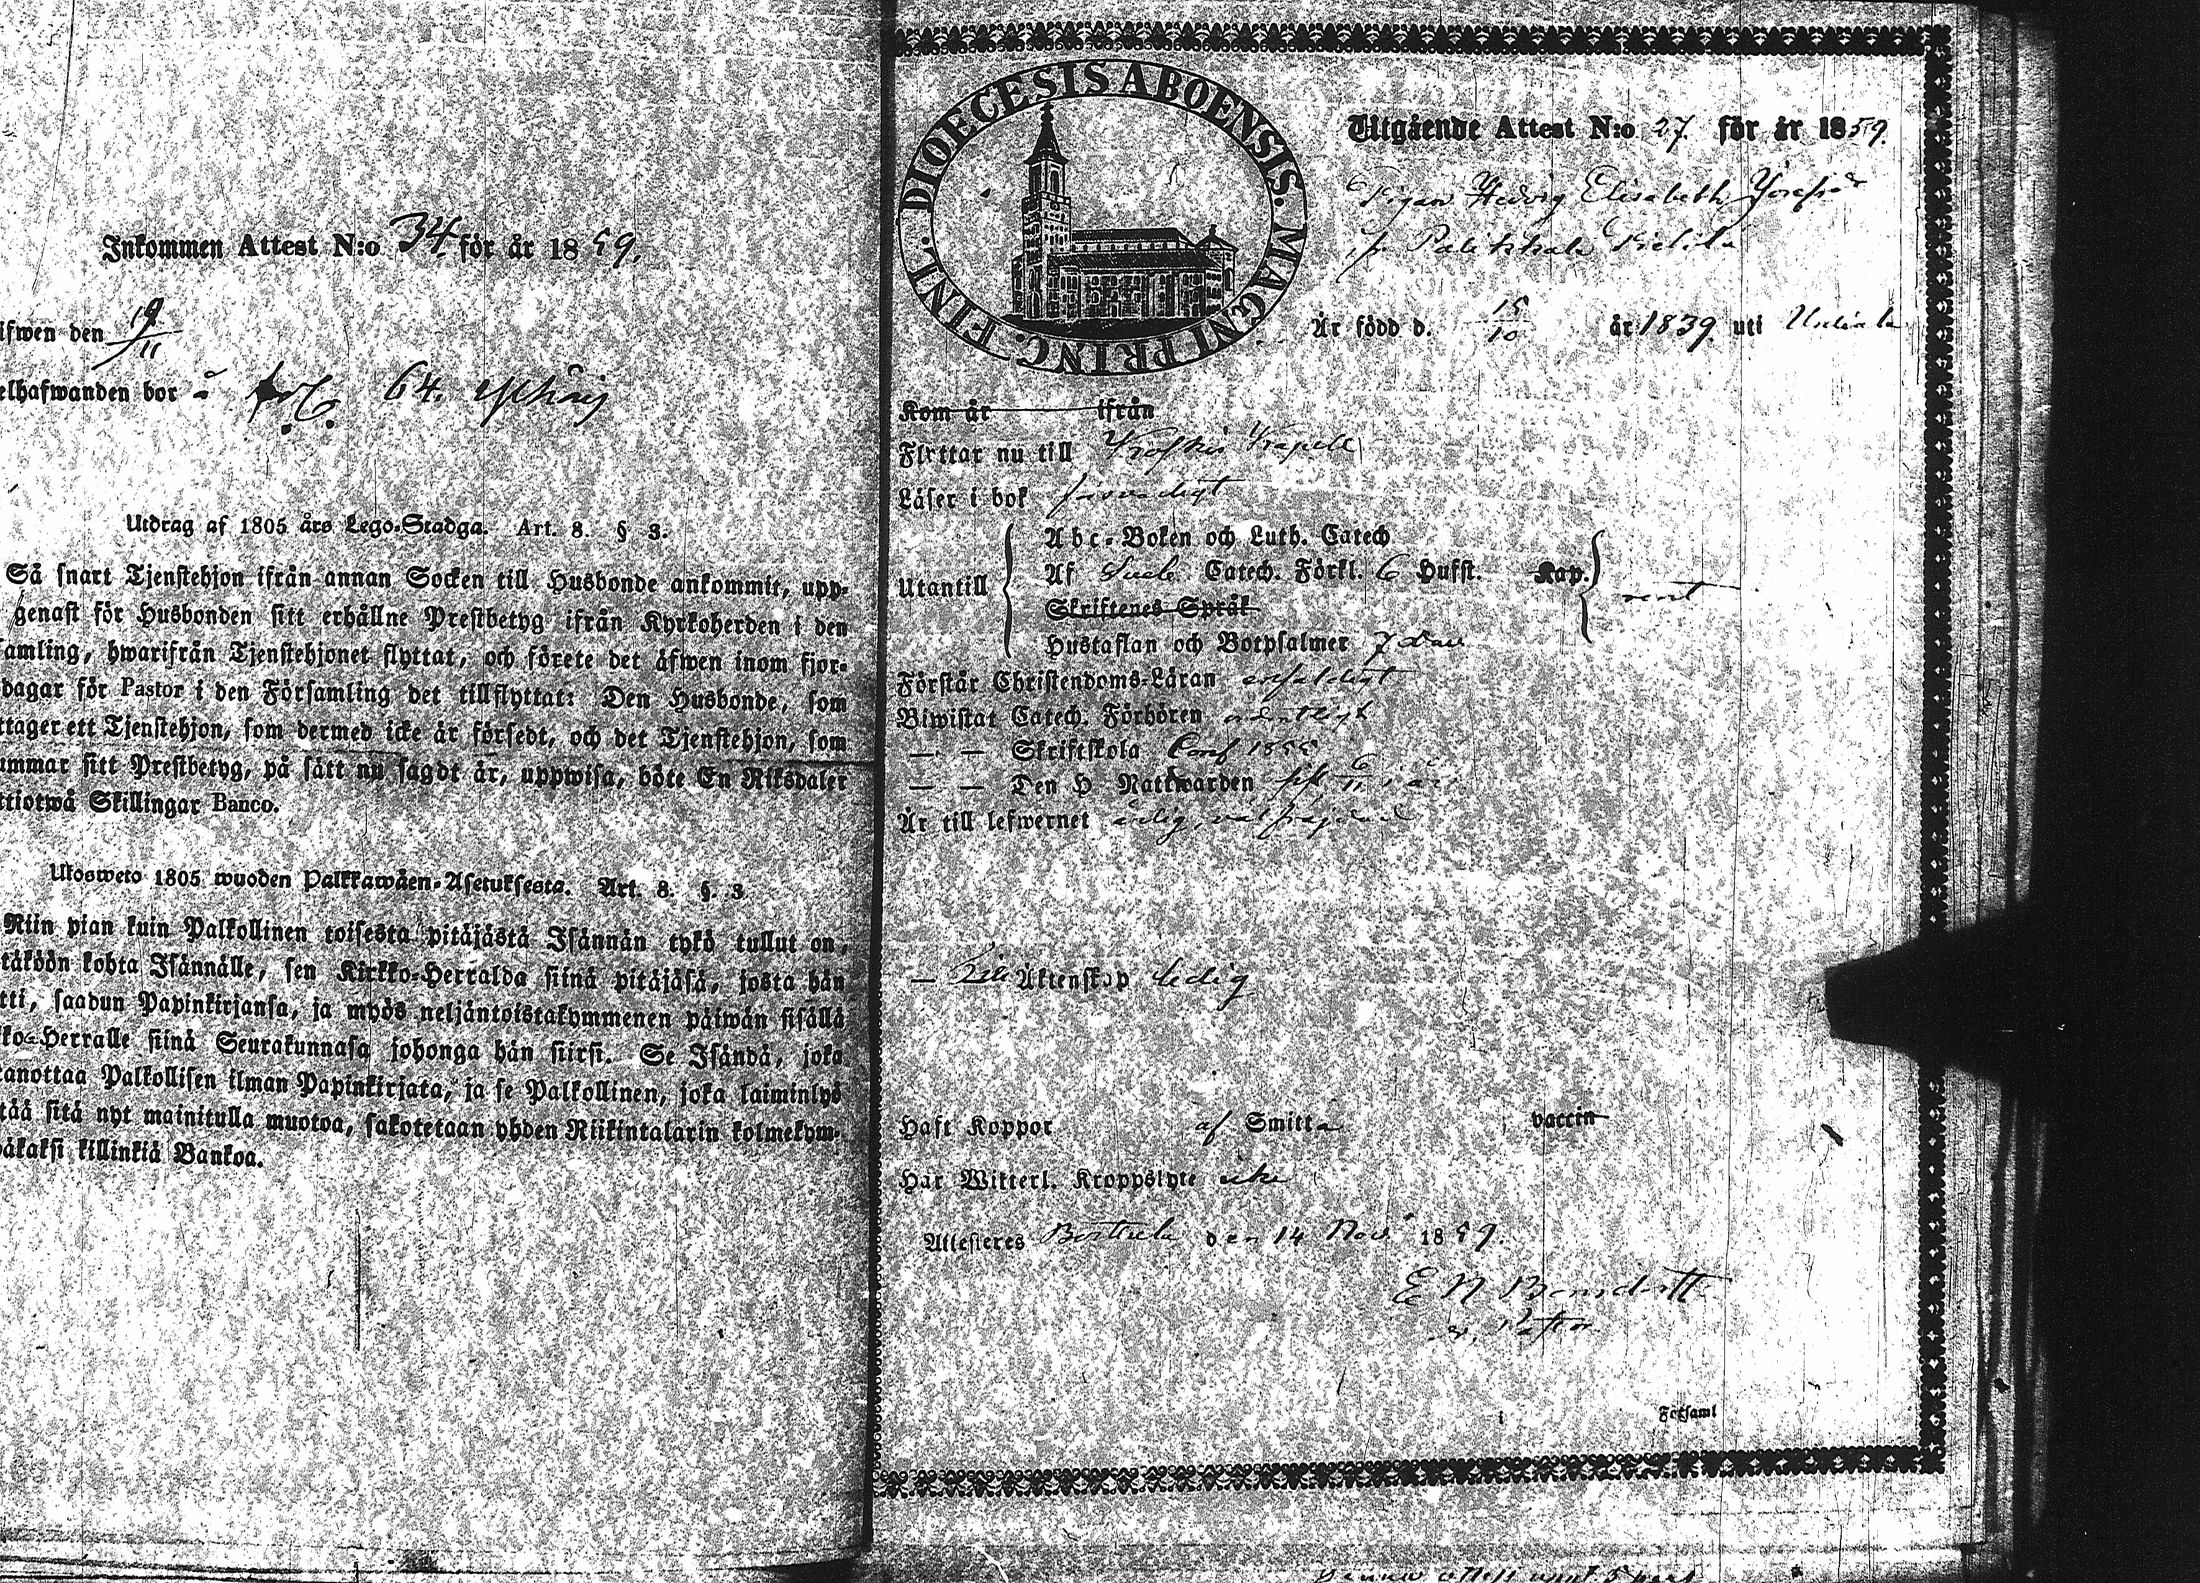 Inkommen Attest N:o 34. för år 1859.
ifwen den 19/11
elhafwanden bor å fol. 64.
Utdrag af 1805 års Lego-Stadga. Art. 8. § 3.
Så snart Tjenstehjon ifrån annan Socken till Husbonde ankommit, upp-
genast för Husbonden sitt erhållne Prestbetyg ifrån Kyrkoherden i den
amling, hwarifrån Tjenstehjonet flyttat, och förete det äfwen inom fjor-
dagar för Pastor i den Församling det tillflyttat: Den Husbonde, som
ttager ett Tjenstehjon, som dermed icke är försedt, och det Tjenstehjon, som
ummar sitt Prestbetyg, på sätt nu sagdt är, uppwisa, böte En Riksdaler
ttiotwå Skillingar Banco.
Ulosweto 1805 wuoden Palkkawäen-Asetuksesta. Art. 8. §. 3
Niin pian kuin Palkollinen toisesta pitäjästä Isännän tykö tullut on,
täköön kohta Isännälle, sen Kirkko-Herralda siinä pitäjäsä, josta hän
tti, saadun Papinkirjansa, ja myös neljäntoistakymmenen päiwän sisällä
ko-Herralle siinä Seurakunnasa johonga hän siirsi. Se Isändä, joka
anottaa Palkollisen ilman Papinkirjata, ja se Palkollinen, joka laiminlyö
tää sitä nyt mainitulla muotoa, sakotetaan yhden Riikintalarin kolmekym-
äkaksi killinkiä Bankoa.
DIOECESIS ABOENSIS. MAGNI PRINC. FINL.
Utgående Attest N:o 27. för år 1859.
Pigan Hedvig Elisabeth Josefsd
fr Palikkala
Är född d. 15/10 år 1839. uti Urdiala
Kom år ifrån
Flyttar nu till Koskis Kapell
Läser i bok försvarligt
Utantill
Abc-Boken och Luth. Catech
Af Sveb. Catech. Förkl. 6 Hufst. Kap.
Skriftenes Språk
Hustaflan och Botpsalmer 7 Dav
rent
Förstår Christendoms-Läran enfaldigt
Biwistat Catech. Förhören ordentligt
— — Skriftskola Conf 1855
— — Den H Nattwarden sist 6/11 i år
Är till lefwernet ärlig, väl frejdad
— Till Äktenskap ledig
Haft Koppor af Smitta vaccin
Har Witterl. Kroppslyte icke
Attesteres Borttula den 14 Nov. 1859.
E N Bonsdorff
v. Pastor
i Församl